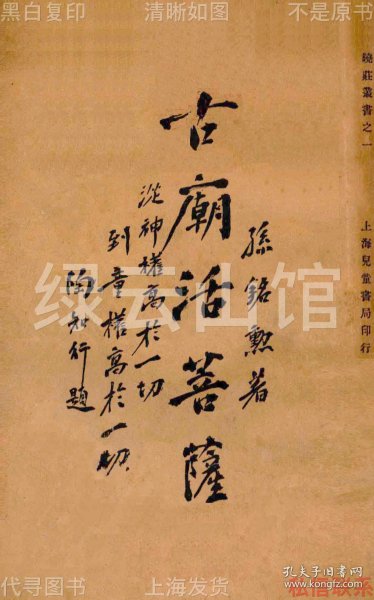 黑白复印 清晰如图 不是原书
曉莊叢書之一
上海兒童書局印行
孫銘勲著
古廟活菩薩
從神權高於一切
到童權高於一切
陶知行題
绿云山馆
代寻图书 上海发货 私信联系
孔夫子旧书网
www.kongfz.com